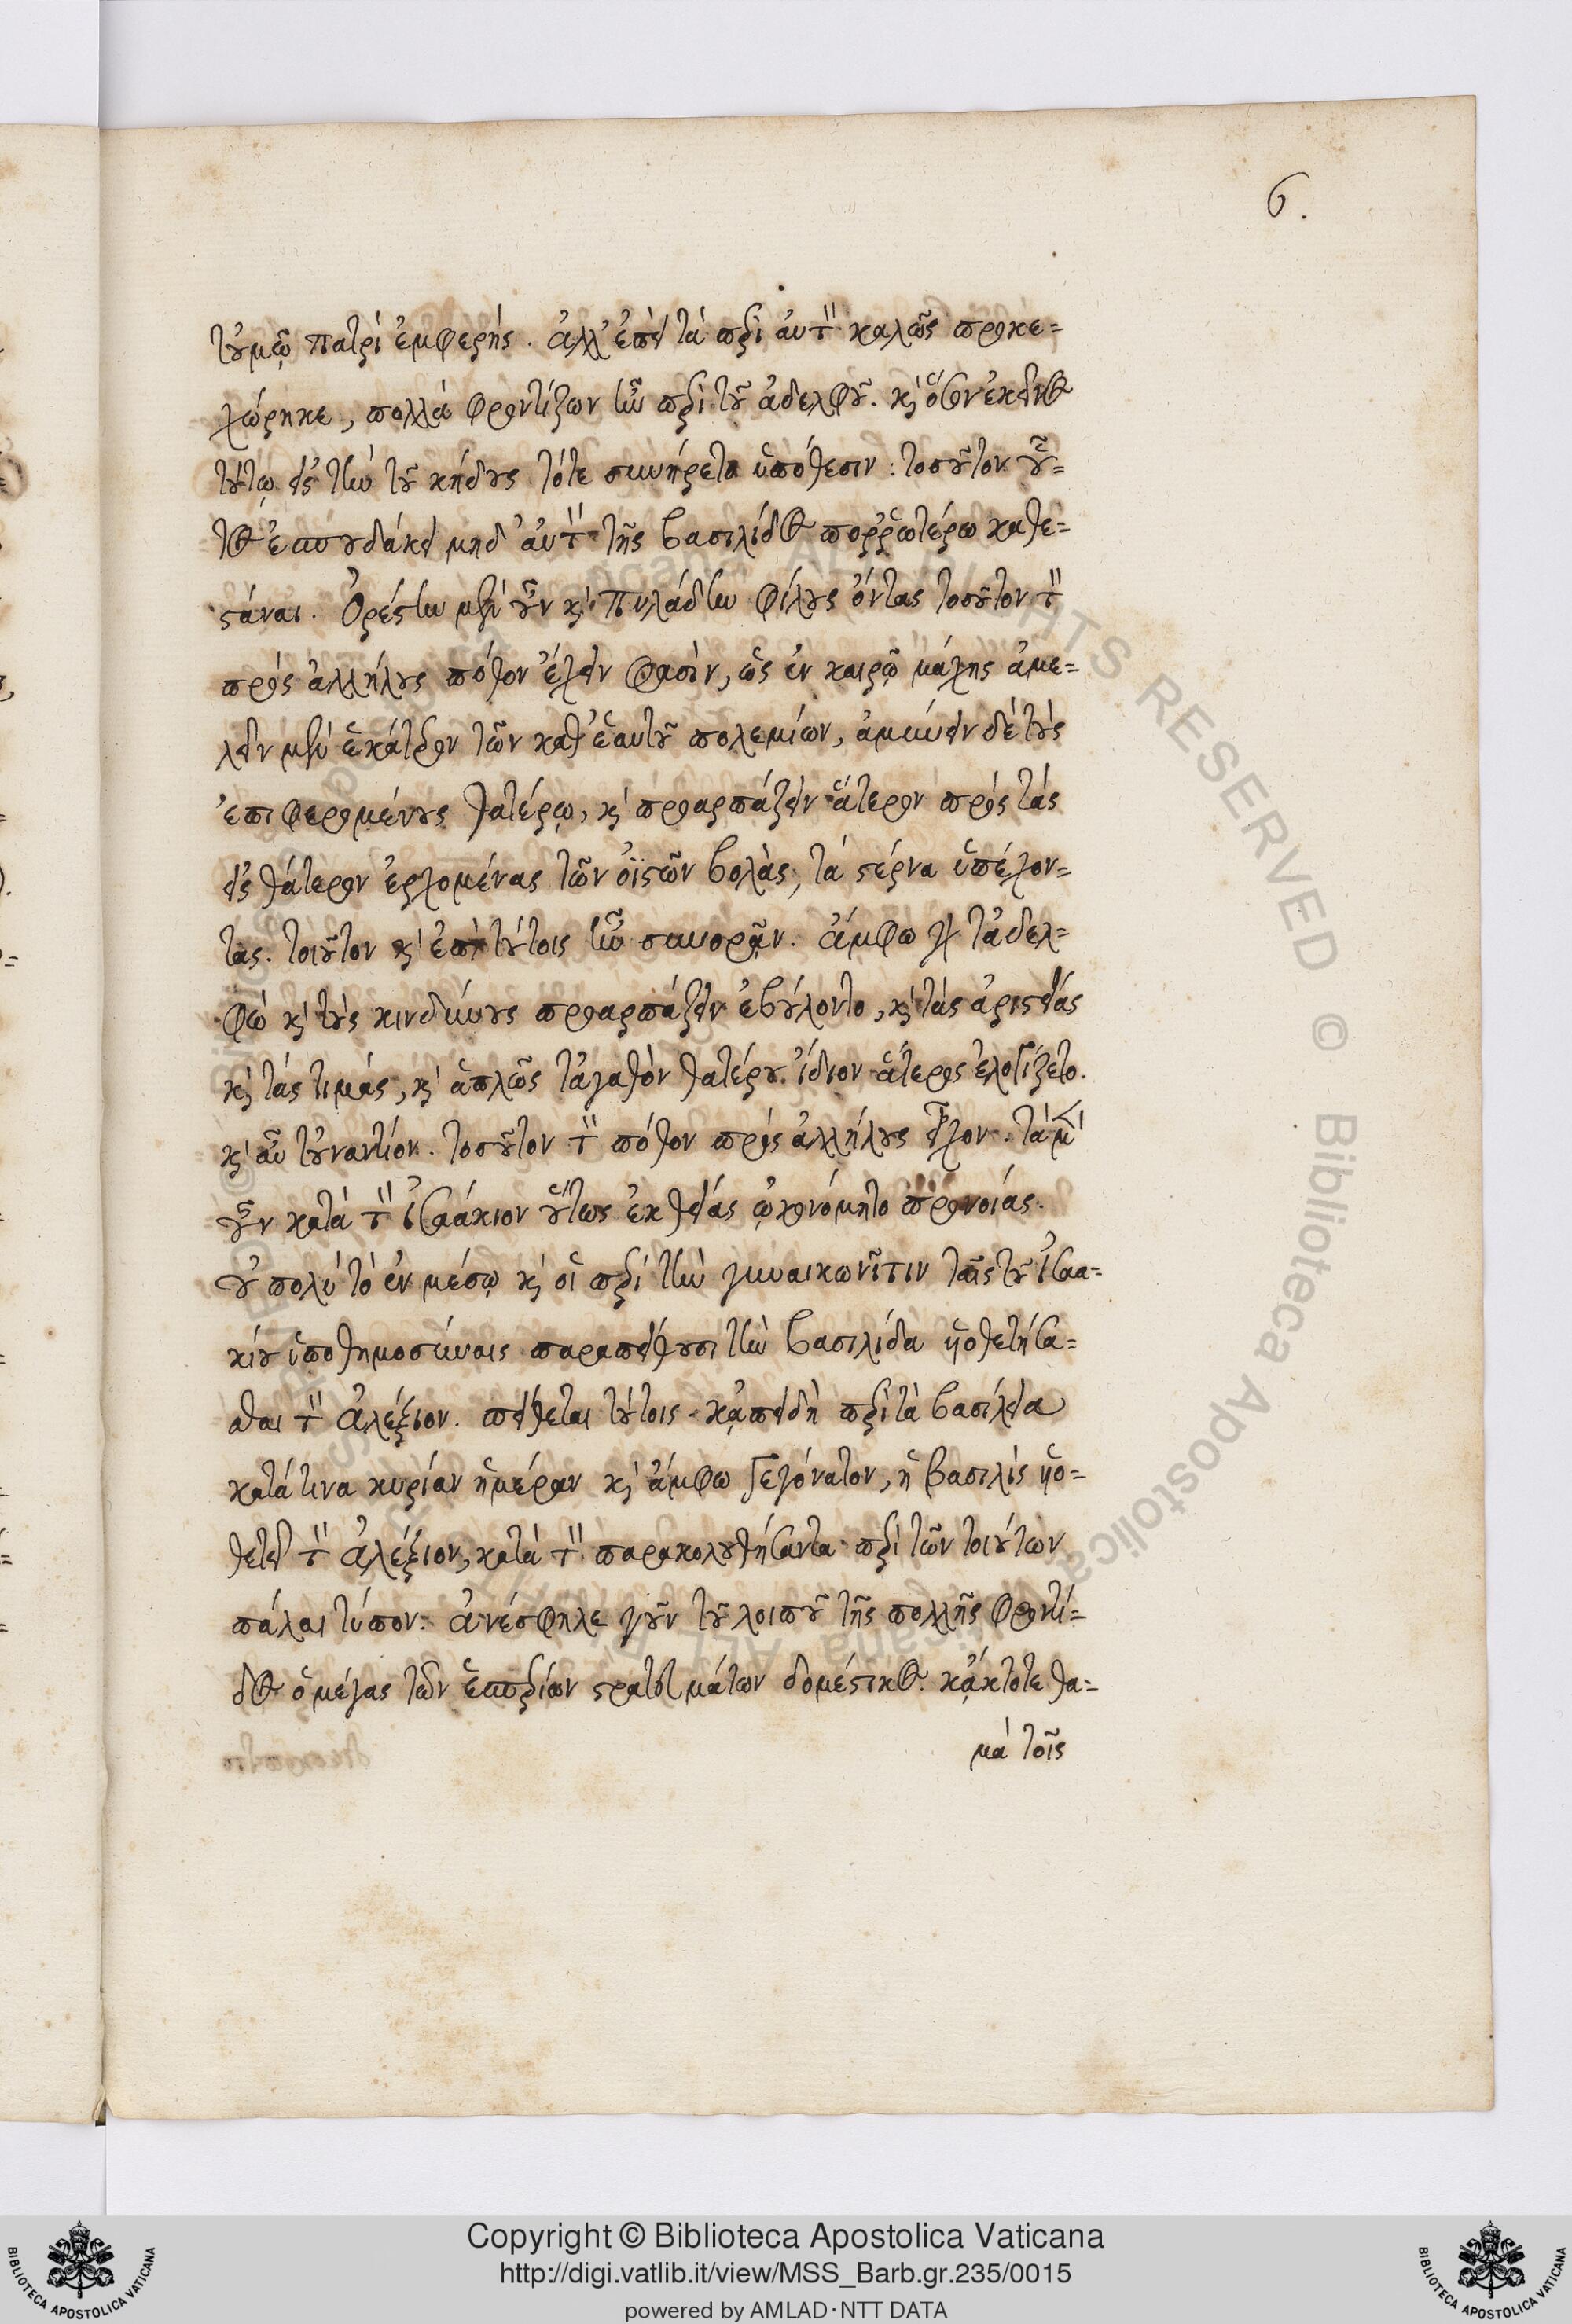 6.
τοὐμῷ πατρὶ ἐμφερής. ἀλλ' ἐπεὶ τὰ περὶ αὐτὸν καλῶς προκε=
χώρηκε, πολλὰ φροντίζων ἦν περὶ τοῦ ἀδελφοῦ. καὶ ὅσον ἐκεῖνος
τούτῳ εἰς τὴν τοῦ κήδους τότε συνήρετο ὑπόθεσιν: τοσοῦτον οὗ=
τος ἐσπουδάκει μηδ' αὐτὸν τῆς βασιλίδος πορῥωτέρω καθε=
στάναι. Ὀρέστην μὲν οὖν καὶ Πυλάδην φίλους ὄντας τοσοῦτον τὸν
πρὸς ἀλλήλους πόθον ἔχειν φασὶν, ὡς ἐν καιρῷ μάχης ἀμε=
λεῖν μὲν ἑκάτερον τῶν καθ' ἑαυτοῦ πολεμίων, ἀμύνειν δὲ τοὺς
ἐπιφερομένους θατέρῳ, καὶ προαρπάζειν ἅτερον πρὸς τὰς
εἰς θάτερον ἐρχομένας τῶν ὀϊστῶν βολὰς, τὰ στέρνα ὑπέχον=
τας. τοιοῦτον καὶ ἐπὶ τούτοις ἦν συνορᾷν. ἄμφω γὰρ τἀδελ=
φὼ καὶ τοὺς κινδύνους προαρπάζειν ἐβούλοντο, καὶ τὰς ἀριστείας
καὶ τὰς τιμὰς, καὶ ἁπλῶς τἀγαθὸν θατέρου ἴδιον ἅτερος ἐλογίζετο.
καὶ αὖ τοὐναντίον. τοσοῦτον τὸν πόθον πρὸς ἀλλήλους εἶχον. τὰ μὲν
οὖν κατὰ τὸν Ἰσαάκιον οὕτως ἐκ θείας ᾠκονόμητο προνοίας.
οὐ πολὺ τὸ ἐν μέσῳ καὶ οἱ περὶ τὴν γυναικωνῖτιν ταῖς τοῦ Ἰσαα=
κίου ὑποθημοσύναις παραπείθουσι τὴν βασιλίδα υἱοθετήσα=
σθαι τὸν Ἀλέξιον. πείθεται τούτοις. κᾀπειδὴ περὶ τὰ βασίλεια
κατά τινα κυρίαν ἡμέραν καὶ ἄμφω γεγόνατον, ἡ βασιλὶς υἱο=
θετεῖ τὸν Ἀλέξιον, κατὰ τὸν παρακολουθήσαντα περὶ τῶν τοιούτων
πάλαι τύπον. ἀνέσφηλε γοῦν τοῦ λοιποῦ τῆς πολλῆς φροντί=
δος ὁ μέγας τῶν ἑσπερίων στρατευμάτων δομέστικος. κᾄκτοτε θα=
μὰ τοῖς
Copyright © Biblioteca Apostolica Vaticana
http://digi.vatlib.it/view/MSS_Barb.gr.235/0015
powered by AMLAD·NTT DATA